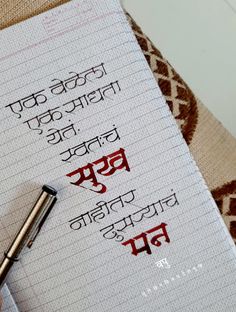 एक वेळेला
एक साधता
येतं.
स्वतःचं
सुख
नाहीतर
दुसऱ्याचं
मन
वपु